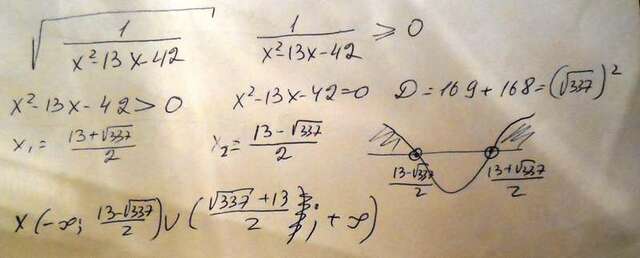 √(1/(x²-13x-42)) 1/(x²-13x-42) ≥ 0
x²-13x-42>0 x²-13x-42=0 D=169+168=(√337)²
x₁= (13+√337)/2 x₂= (13-√337)/2
(13-√337)/2 (13+√337)/2
x (-∞; (13-√337)/2) ∪ ((√337+13)/2 ; +∞)